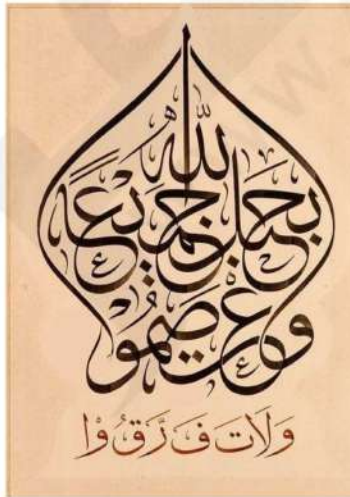 واعتصموا
بحبل الله جميعًا
وَلَا تَ فَ رَّ قُ وْا